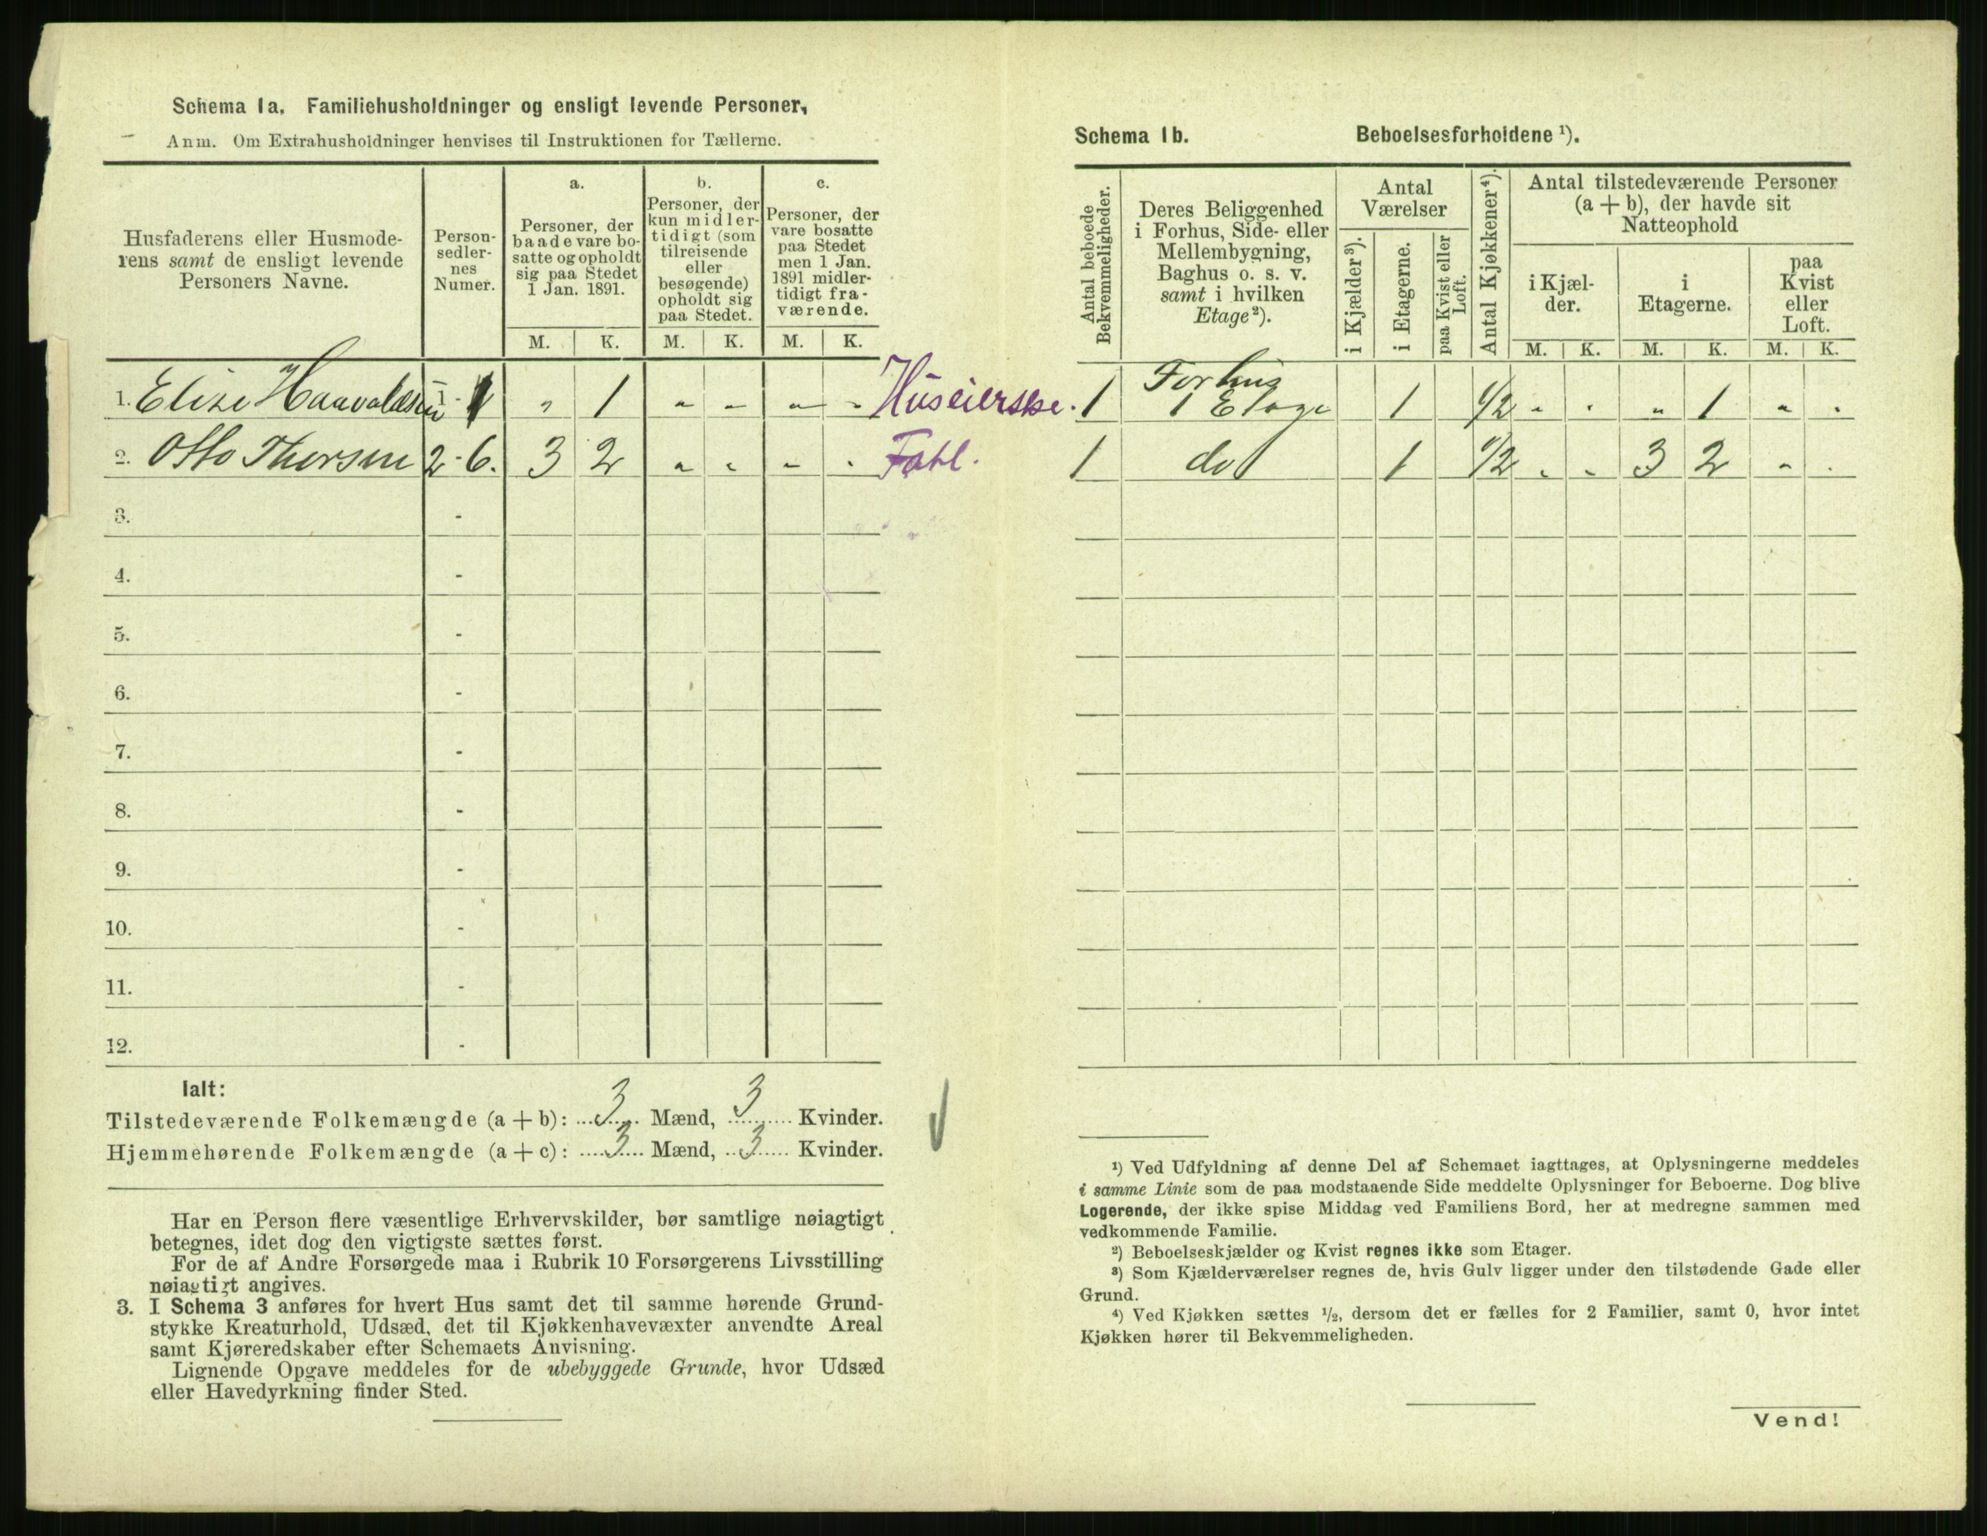 Schema 1a. Familiehusholdninger og ensligt levende Personer,
Anm. Om Extrahusholdninger henvises til Instruktionen for Tællerne.
Husfaderens eller Husmode-
rens samt de ensligt levende
Personers Navne.
Person-
sedler-
nes
Numer.
a.
Personer, der
baade vare bo-
satte og opholdt
sig paa Stedet
1 Jan. 1891.
b.
Personer, der
kun midler-
tidigt (som
tilreisende
eller
besøgende)
opholdt sig
paa Stedet.
c.
Personer, der
vare bosatte
paa Stedet
men 1 Jan.
1891 midler-
tidigt fra-
værende.
M. K. M. K. M. K.
1. Elise Haavaldsen 1 - 1 " 1 " " " " Huseierske.
2. Otto Thorsen 2 - 6. 3 2 " " " "
3. -
4. -
5. -
6. -
7. -
8. -
9. -
10. -
11. -
12. -
Ialt:
Tilstedeværende Folkemængde (a + b): 3 Mænd, 3 Kvinder.
Hjemmehørende Folkemængde (a + c): 3 Mænd, 3 Kvinder.
Har en Person flere væsentlige Erhvervskilder, bør samtlige nøiagtigt
betegnes, idet dog den vigtigste sættes først.
For de af Andre Forsørgede maa i Rubrik 10 Forsørgerens Livsstilling
nøiagtigt angives.
3. I Schema 3 anføres for hvert Hus samt det til samme hørende Grund-
stykke Kreaturhold, Udsæd, det til Kjøkkenhavevæxter anvendte Areal
samt Kjøreredskaber efter Schemaets Anvisning.
Lignende Opgave meddeles for de ubebyggede Grunde, hvor Udsæd
eller Havedyrkning finder Sted.
Schema 1b. Beboelsesforholdene ¹).
Antal beboede
Bekvemmeligheder.
Deres Beliggenhed
i Forhus, Side- eller
Mellembygning,
Baghus o. s. v.
samt i hvilken
Etage²).
Antal
Værelser
i Kjælder³).
i Etagerne.
paa Kvist eller
Loft.
Antal Kjøkkener⁴).
Antal tilstedeværende Personer
(a + b), der havde sit
Natteophold
i Kjæl-
der.
i
Etagerne.
paa
Kvist
eller
Loft.
M. K. M. K. M. K.
1 Forhus
1 Etage 1 1/2 " " " 1 " "
1 do 1 1 1/2 " " 3 2 " "
¹) Ved Udfyldning af denne Del af Schemaet iagttages, at Oplysningerne meddeles
i samme Linie som de paa modstaaende Side meddelte Oplysninger for Beboerne. Dog blive
Logerende, der ikke spise Middag ved Familiens Bord, her at medregne sammen med
vedkommende Familie.
²) Beboelseskjælder og Kvist regnes ikke som Etager.
³) Som Kjælderværelser regnes de, hvis Gulv ligger under den tilstødende Gade eller
Grund.
⁴) Ved Kjøkken sættes 1/2, dersom det er fælles for 2 Familier, samt 0, hvor intet
Kjøkken hører til Bekvemmeligheden.
Vend!